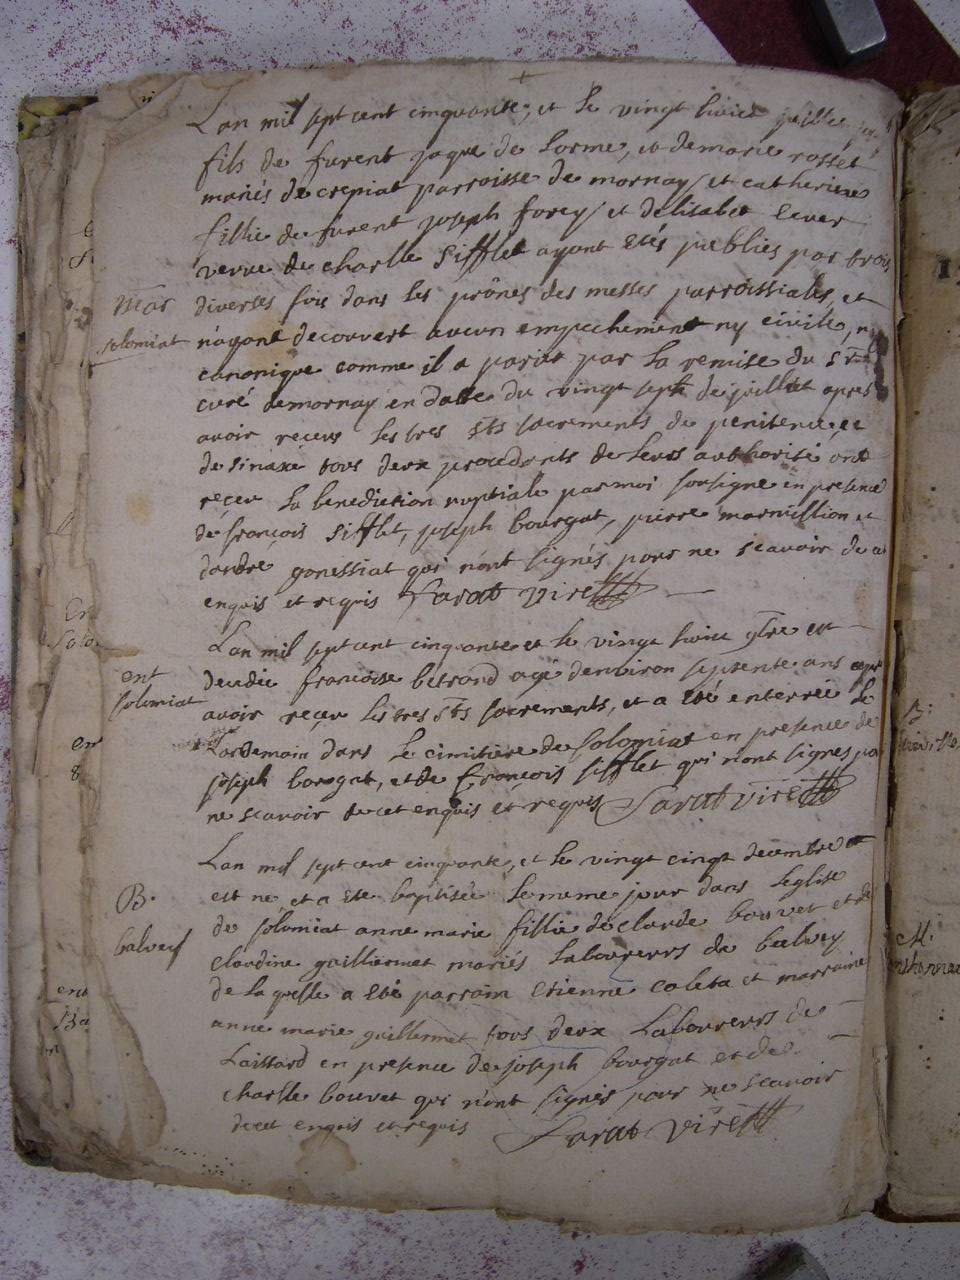 Lan mil sept cent cinquante, et le vingt huict juillet
fils de furent jaque de Lorme, et de marie rosset
mariés de crepiat parroisse de mornay / et catherine
fillie de furent joseph forey / et delisabet
vevve de charlle Sifflet ayant etés publies par trois
Mar
solomiat
diverses fois dans les prônes des messes parroissiales, et
n'ayant decouvert aucun empechement ny civile, ny
canonique comme il a pariut par la remise du Sr
curé demornay en datte du vingt sept de juillet apres
avoir reçeus les tres Sts sacrements de penitence, et
de sinaxe tous deux procedants de leurs authorité ont
reçeu la benediction nuptiale par moi sousigne en presence
de françois Sifflet, joseph bourgat, pierre marmillion et
dandre gonessiat qui n'ont signés pour ne scavoir de ce
enquis et requis Sarat vire
Lan mil sept cent cinquante et le vingt huict 9bre est
ent
solomiat
decedée francoise betrand agé denviron septente ans apres
avoir reçeu les tres Sts sacrements, et a eté enterreé le
Lordemain dans le cimitiere de solomiat en presence de
joseph borogat, et de françois sifflet qui n'ont signes pour
ne scavoir de cet enquis et requis Sarat vire
Lan mil sept cent cinquante, et le vingt cinqt decembre
B.
balvey
est ne, et a ete baptisée le meme jour dans leglise
de solomiat anne marie fillie de claude bouvet et de
claudine guilliermet mariés laboureurs de balvey
de laquelle a eté parrain etienne caleta et marraine
anne marie guillermet tous deux laboureurs de
Laissard en presence de joseph bourgat et de
charlle bouvet qui n'ont signés pour ne scavoir
decet enquis et requis Sarat vire